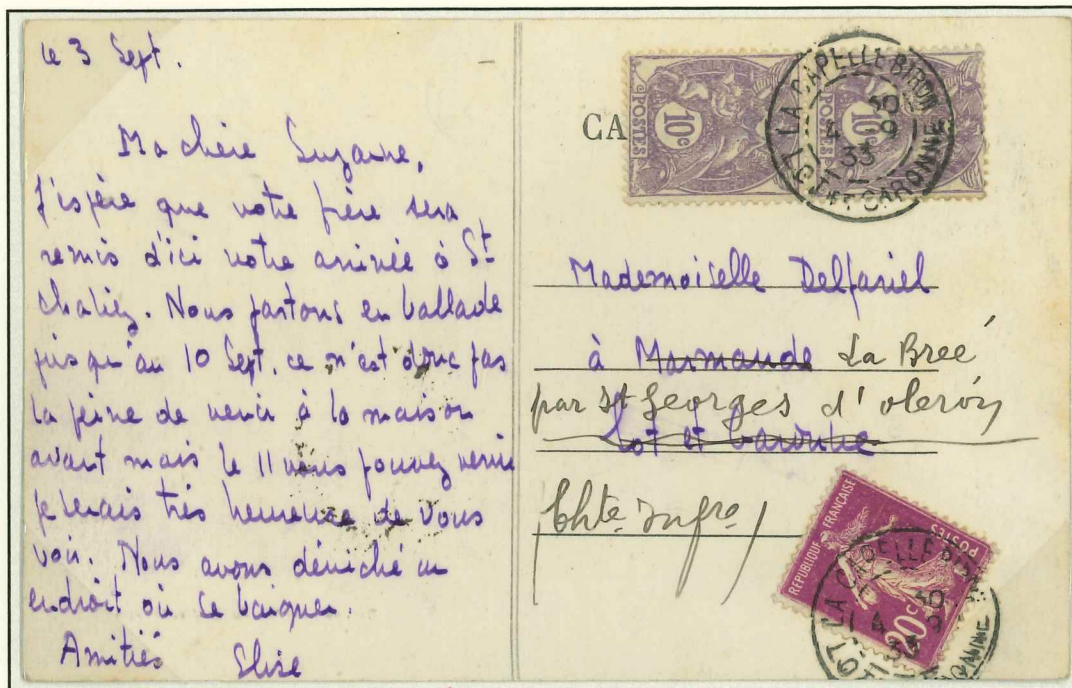 le 3 Sept.
Ma chère Suzanne,
J'espère que votre frère sera
remis d'ici votre arrivée à St
Chaliez. Nous partons en ballade
jusqu'au 10 Sept. ce n'est donc pas
la peine de venir à la maison
avant mais le 11 vous pouvez venir
je serais très heureuse de vous
voir. Nous avons déniché un
endroit où se baigner.
Amitiés Elise
CA
10c
POSTES
10c
LA CAPELLE BIRON
4 9
33
LOT ET GARONNE
Mademoiselle Delfariel
à Marmande La Breé
par St Georges d'oleron
Lot et Garonne
Chte Infre
REPUBLIQUE FRANÇAISE
POSTES
20c
LA CAPELLE BIRON
4 9
33
LOT ET GARONNE